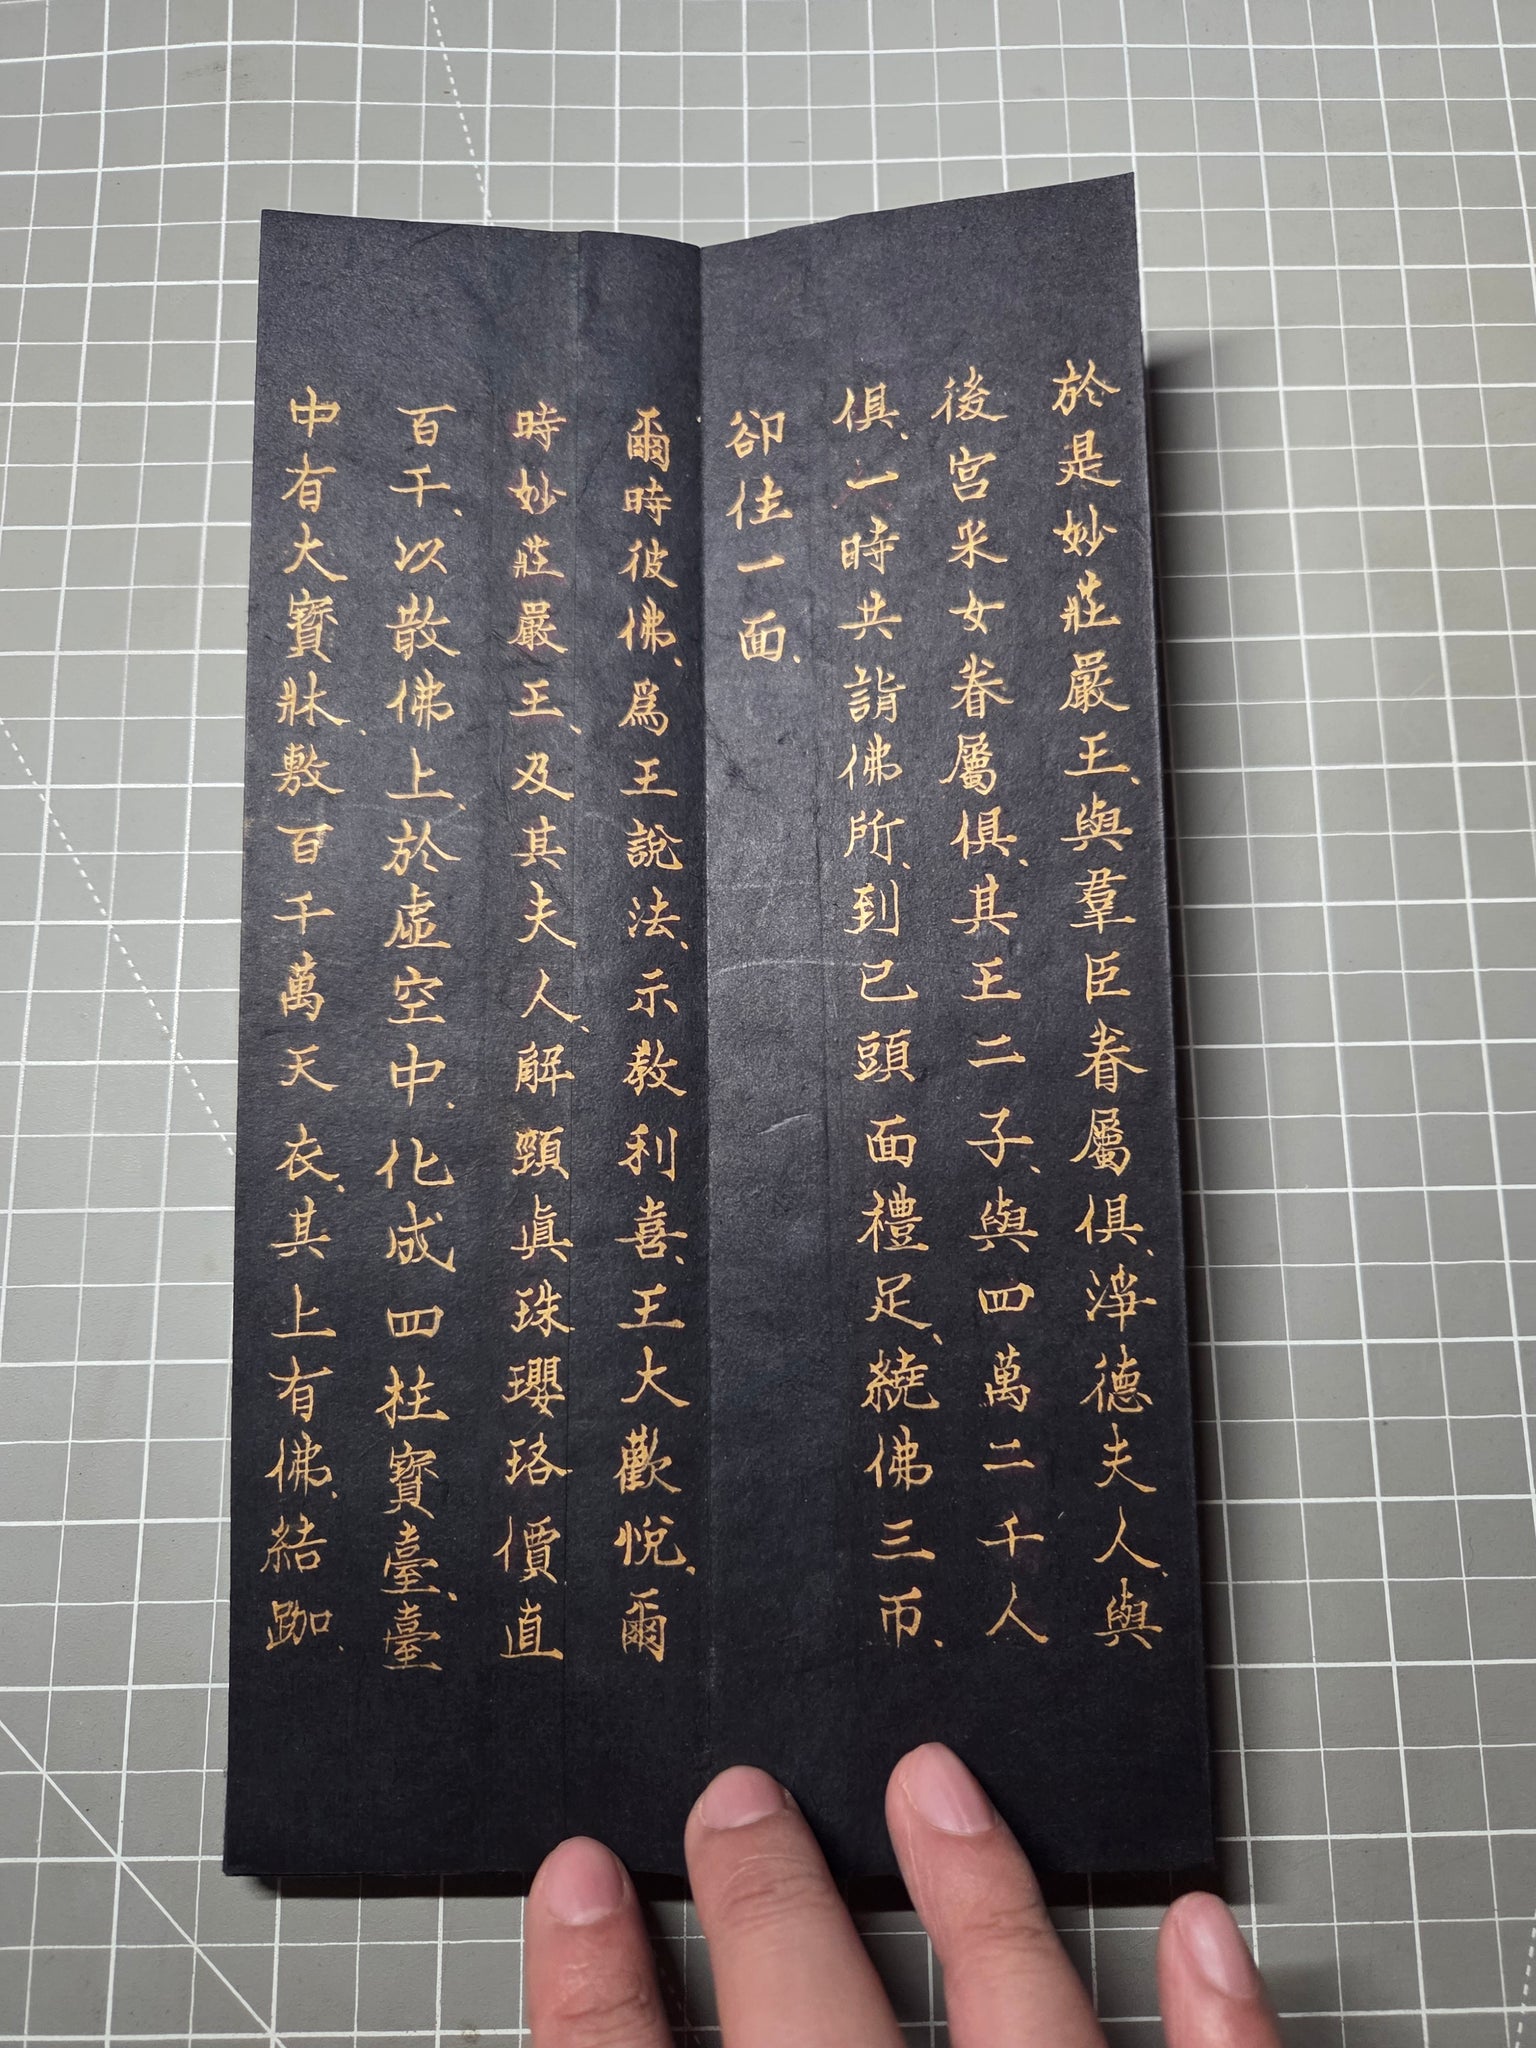 於是妙莊嚴王、與羣臣眷屬俱、淨德夫人、與
後宮采女眷屬俱、其王二子、與四萬二千人
俱、一時共詣佛所、到已頭面禮足、繞佛三帀、
卻住一面、
爾時彼佛、爲王說法、示教利喜、王大歡悅、爾
時妙莊嚴王、及其夫人、解頸眞珠瓔珞價直
百千、以散佛上、於虛空中、化成四柱寶臺、臺
中有大寶牀、敷百千萬天衣、其上有佛、結跏、